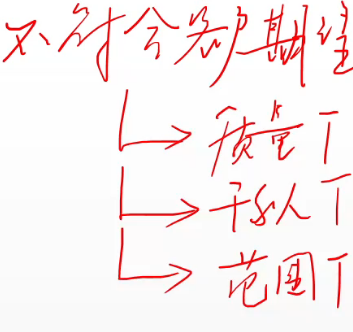 不符合客户期望
质量T
干系人T
范围T